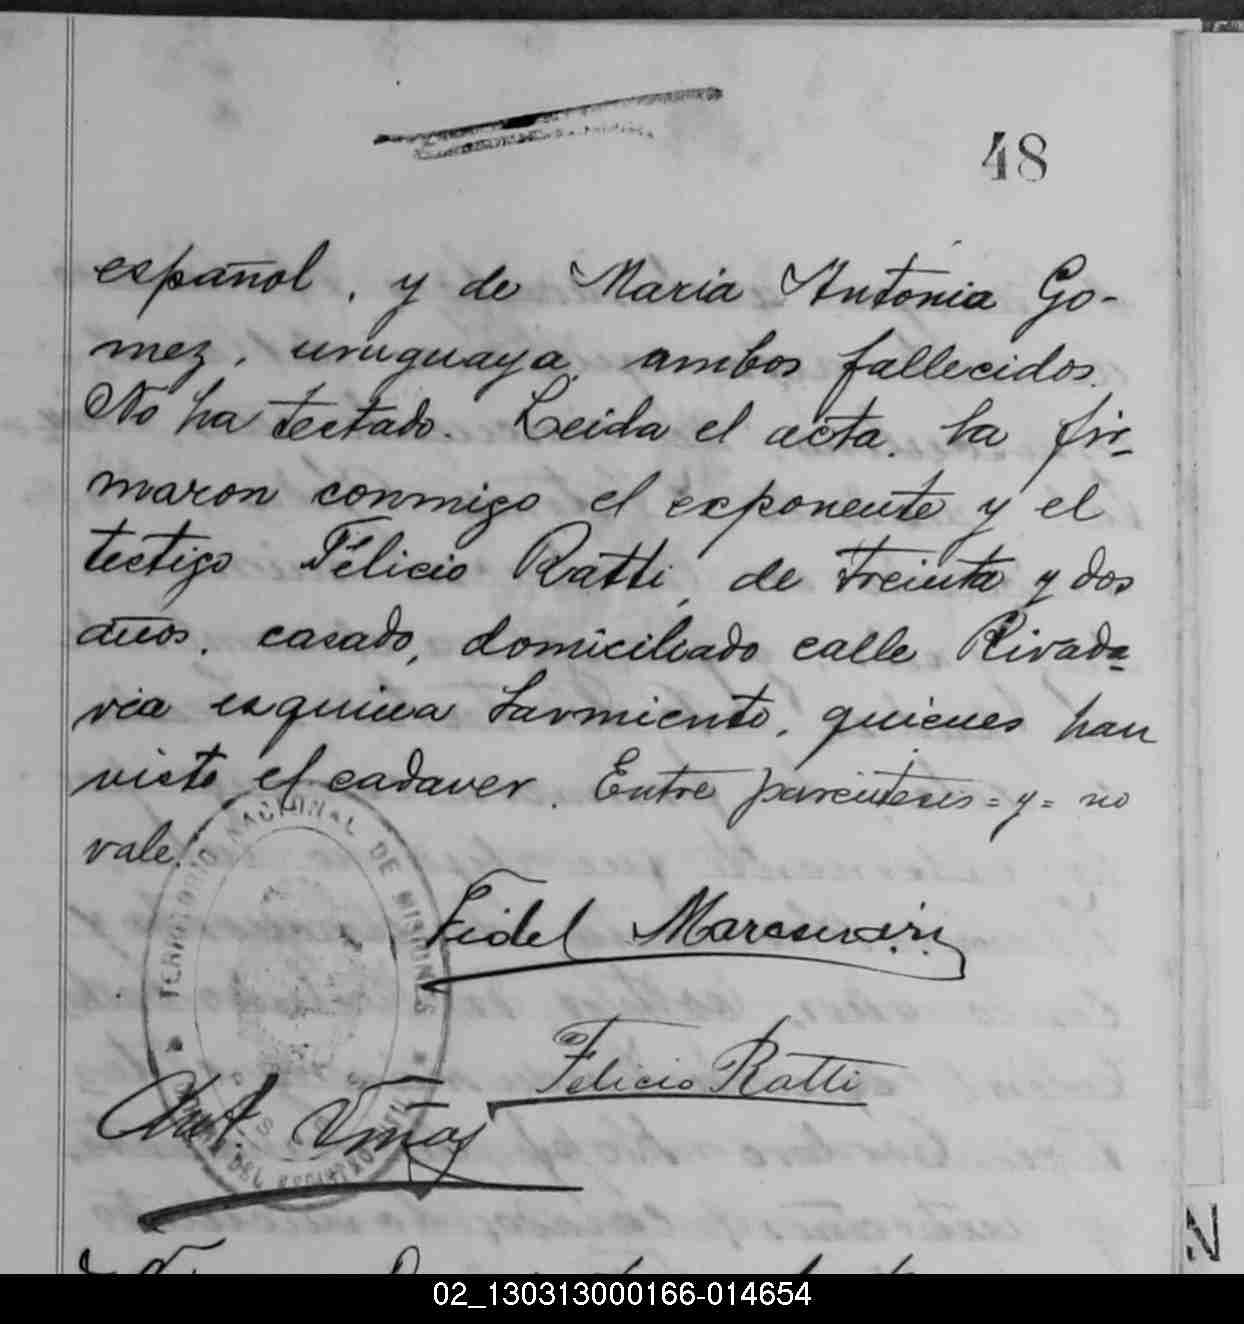 48
español, y de Maria Antonia Go-
mez, uruguaya, ambos fallecidos.
No ha testado. Leida el acta, la fir-
maron conmigo el exponente y el
testigo Félicio Ratti, de treinta y dos
años, casado, domiciliado calle Rivada-
via esquina Sarmiento, quienes han
visto el cadaver. Entre parentesis = y = no
vale.
TERRITORIO NACIONAL DE MISIONES
DEL REGISTRO CIVIL
Fidel
Felicio Ratti
N
02_130313000166-014654